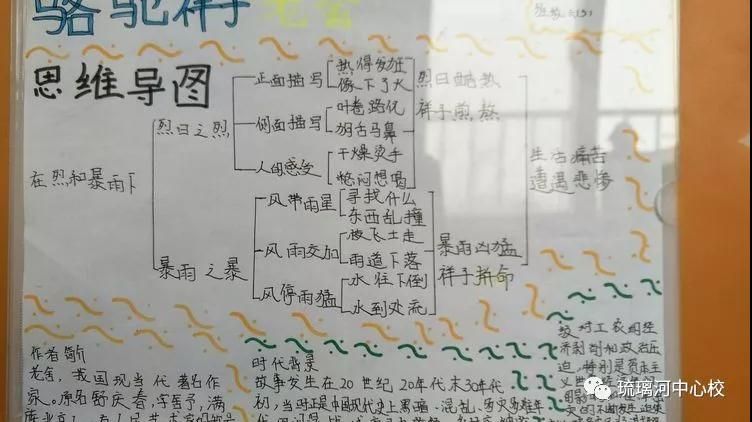 骆驼祥子 老舍
思维导图
在烈和暴雨下
烈日之烈
正面描写
热得发狂
像下了火
侧面描写
叶卷路化
狗舌马鼻
人的感受
干燥烫手
憋闷想喝
烈日酷热
祥子煎熬
暴雨之暴
风带雨星
寻找什么
东西乱撞
风雨交加
土走
雨道下落
风停雨猛
水往下倒
水到处流
暴雨凶猛
祥子拼命
生活痛苦
遭遇悲惨
作者简介
老舍，我国现当代著名作
家。原名舒庆春，字舍予，满
时代背景
故事发生在20世纪20年代末30年代
初，当时正是中国现代史上黑暗、混乱、
济剥削和政治压
迫，特别是资本主
琉璃河中心校